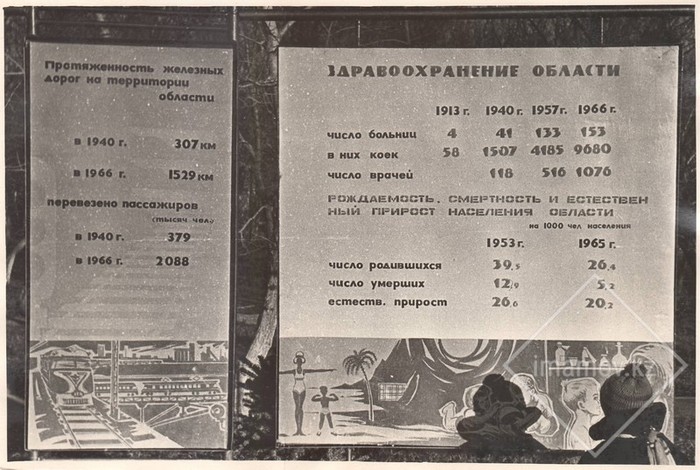 Протяженность железных
дорог на территории
области
в 1940 г. 307 км
в 1966 г. 1529 км
перевезено пассажиров
(тысяч чел.)
в 1940 г. 379
в 1966 г. 2088
ЗДРАВООХРАНЕНИЕ ОБЛАСТИ
1913 г. 1940 г. 1957 г. 1966 г.
число больниц 4 41 133 153
в них коек 58 1507 4185 9680
число врачей 118 516 1076
РОЖДАЕМОСТЬ, СМЕРТНОСТЬ И ЕСТЕСТВЕН
НЫЙ ПРИРОСТ НАСЕЛЕНИЯ ОБЛАСТИ
на 1000 чел населения
1953 г. 1965 г.
число родившихся 39,5 26,4
число умерших 12,9 5,2
естеств. прирост 26,6 20,2
imamev.kz